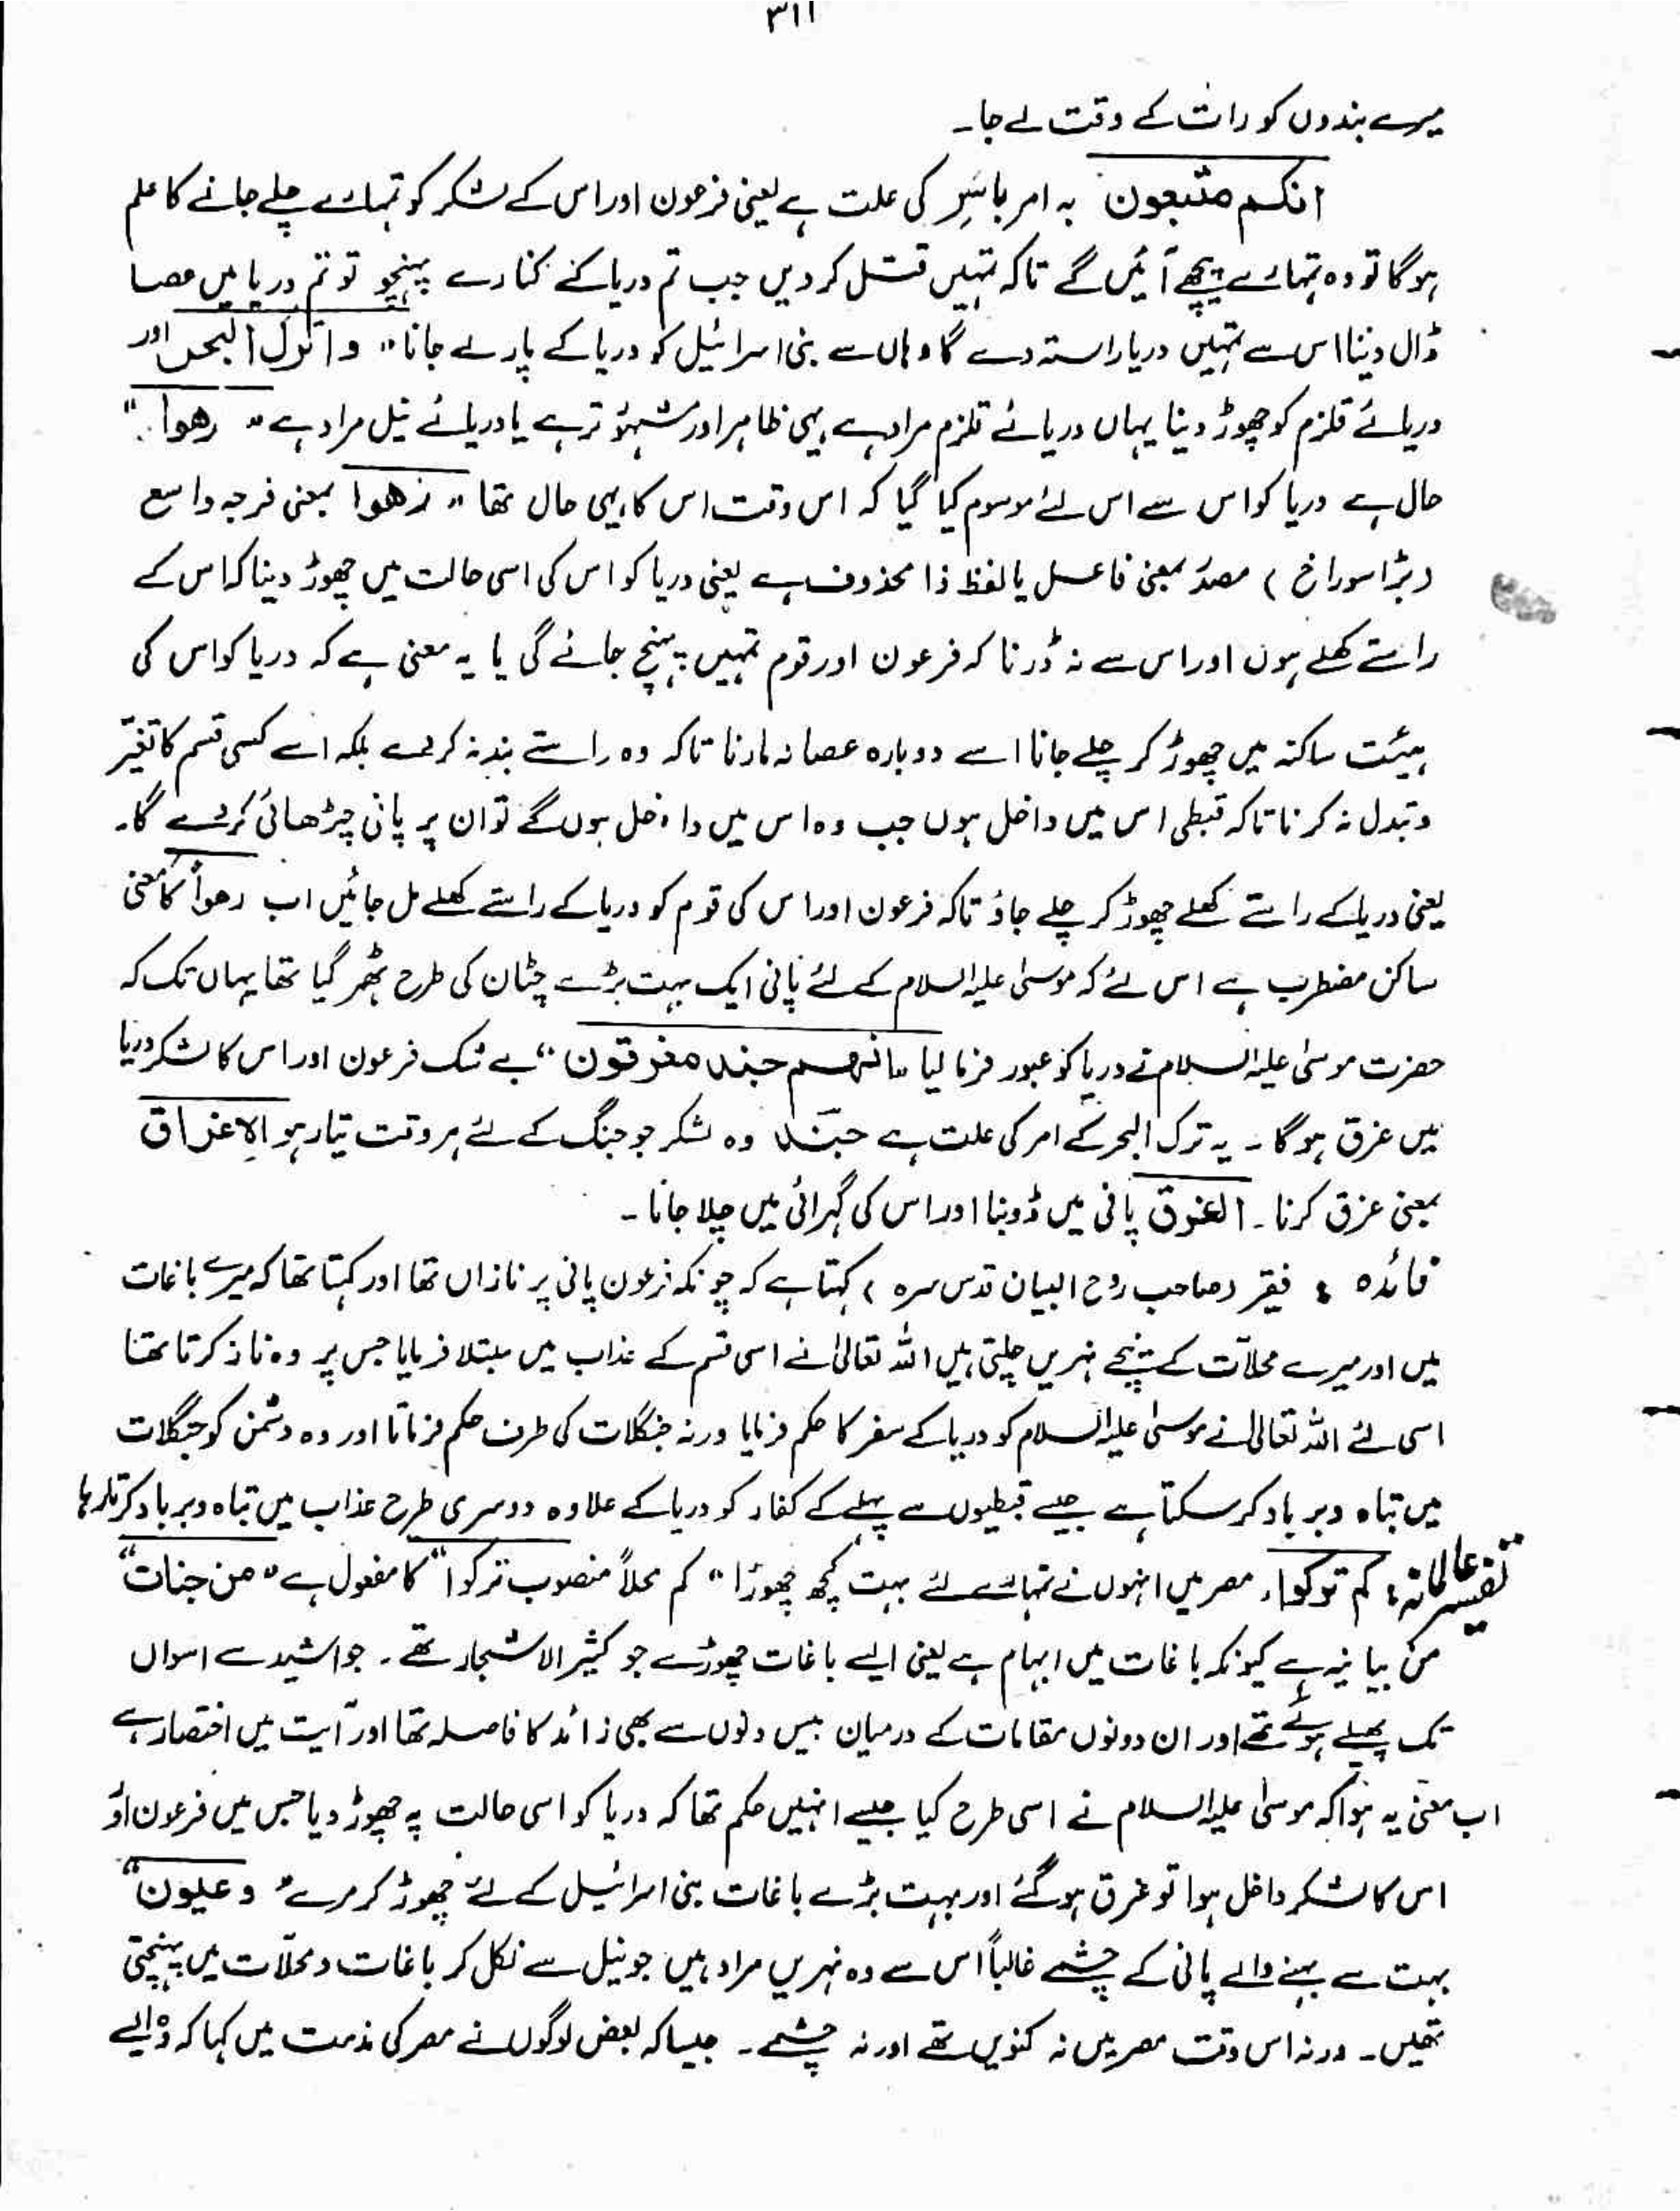 ۳۱۱
میرے بندوں کو رات کے وقت لے جا۔
انکم متبعون یہ امر باسر کی علت ہے یعنی فرعون اور اس کے لشکر کو تمہارے چلے جانے کا علم
ہوگا تو وہ تمہارے پیچھے آئیں گے تاکہ تمہیں قتل کر دیں جب تم دریا کے کنارے پہنچو تو تم دریا میں عصا
ڈال دینا اس سے تمہیں دریا راستہ دے گا وہاں سے بنی اسرائیل کو دریا کے پار لے جانا " واترک البحر اور
دریائے قلزم کو چھوڑ دینا یہاں دریائے قلزم مراد ہے یہی ظاہر اور مشہور تر ہے یا دریائے نیل مراد ہے " رھوا "
حال ہے دریا کو اس سے اس لئے موسوم کیا گیا کہ اس وقت اس کا یہی حال تھا " رھوا بمعنی فرجہ واسع
(بڑا سوراخ) مصدر بمعنی فاعل یا لفظ ذا محذوف ہے یعنی دریا کو اس کی اسی حالت میں چھوڑ دینا کہ اس کے
راستے کھلے ہوں اور اس سے نہ ڈرنا کہ فرعون اور قوم تمہیں پہنچ جائے گی یا یہ معنی ہے کہ دریا کو اس کی
ہیئت ساکنہ میں چھوڑ کر چلے جانا اسے دوبارہ عصا نہ مارنا تاکہ وہ راستے بند نہ کر دے بلکہ اسے کسی قسم کا تغیّر
و تبدل نہ کرنا تاکہ قبطی اس میں داخل ہوں جب وہ اس میں داخل ہوں گے تو ان پر پانی چڑھائی کر دے گا۔
یعنی دریا کے راستے کھلے چھوڑ کر چلے جاؤ تاکہ فرعون اور اس کی قوم کو دریا کے راستے کھلے مل جائیں اب رھواً کا معنی
ساکن مضطرب ہے اس لئے کہ موسیٰ علیہ السلام کے لئے پانی ایک بہت بڑے چٹان کی طرح ٹھہر گیا تھا یہاں تک کہ
حضرت موسیٰ علیہ السلام نے دریا کو عبور فرما لیا " انھم جند مغرقون " بے شک فرعون اور اس کا لشکر دریا
میں غرق ہوگا۔ یہ ترک البحر کے امر کی علت ہے جند وہ لشکر جو جنگ کے لئے ہر وقت تیار ہو الاغراق
بمعنی غرق کرنا۔ الغرق پانی میں ڈوبنا اور اس کی گہرائی میں چلا جانا۔
فائدہ : فقیر (صاحب روح البیان قدس سرہ) کہتا ہے کہ چونکہ فرعون پانی پر نازاں تھا اور کہتا تھا کہ میرے باغات
میں اور میرے محلات کے نیچے نہریں چلتی ہیں اللہ تعالیٰ نے اسی قسم کے عذاب میں مبتلا فرمایا جس پر وہ ناز کرتا تھا
اسی لئے اللہ تعالیٰ نے موسیٰ علیہ السلام کو دریا کے سفر کا حکم فرمایا ورنہ جنگلات کی طرف حکم فرماتا اور وہ دشمن کو جنگلات
میں تباہ و برباد کر سکتا ہے جیسے قبطیوں سے پہلے کے کفار کو دریا کے علاوہ دوسری طرح عذاب میں تباہ و برباد کرتا رہا
تفسیر عالمانہ : کم ترکوا، مصر میں انہوں نے تمہارے لئے بہت کچھ چھوڑا " کم محلاً منصوب ترکوا " کا مفعول ہے " من جنات "
من بیانیہ ہے کیونکہ باغات میں ابہام ہے یعنی ایسے باغات چھوڑے جو کثیر الاشجار تھے۔ جو اشید سے اسواں
تک پھیلے ہوئے تھے اور ان دونوں مقامات کے درمیان بیس دنوں سے بھی زائد کا فاصلہ تھا اور آیت میں اختصار ہے
اب معنی یہ ہوا کہ موسیٰ علیہ السلام نے اسی طرح کیا جیسے انہیں حکم تھا کہ دریا کو اسی حالت پہ چھوڑ دیا جس میں فرعون اور
اس کا لشکر داخل ہوا تو غرق ہو گئے اور بہت بڑے باغات بنی اسرائیل کے لئے چھوڑ کر مرے " وعیون "
بہت سے بہنے والے پانی کے چشمے غالباً اس سے وہ نہریں مراد ہیں جو نیل سے نکل کر باغات و محلّات میں پہنچتی
تھیں۔ ورنہ اس وقت مصر میں نہ کنویں تھے اور نہ چشمے۔ جیسا کہ بعض لوگوں نے مصر کی مذمت میں کہا کہ وہ ایسے